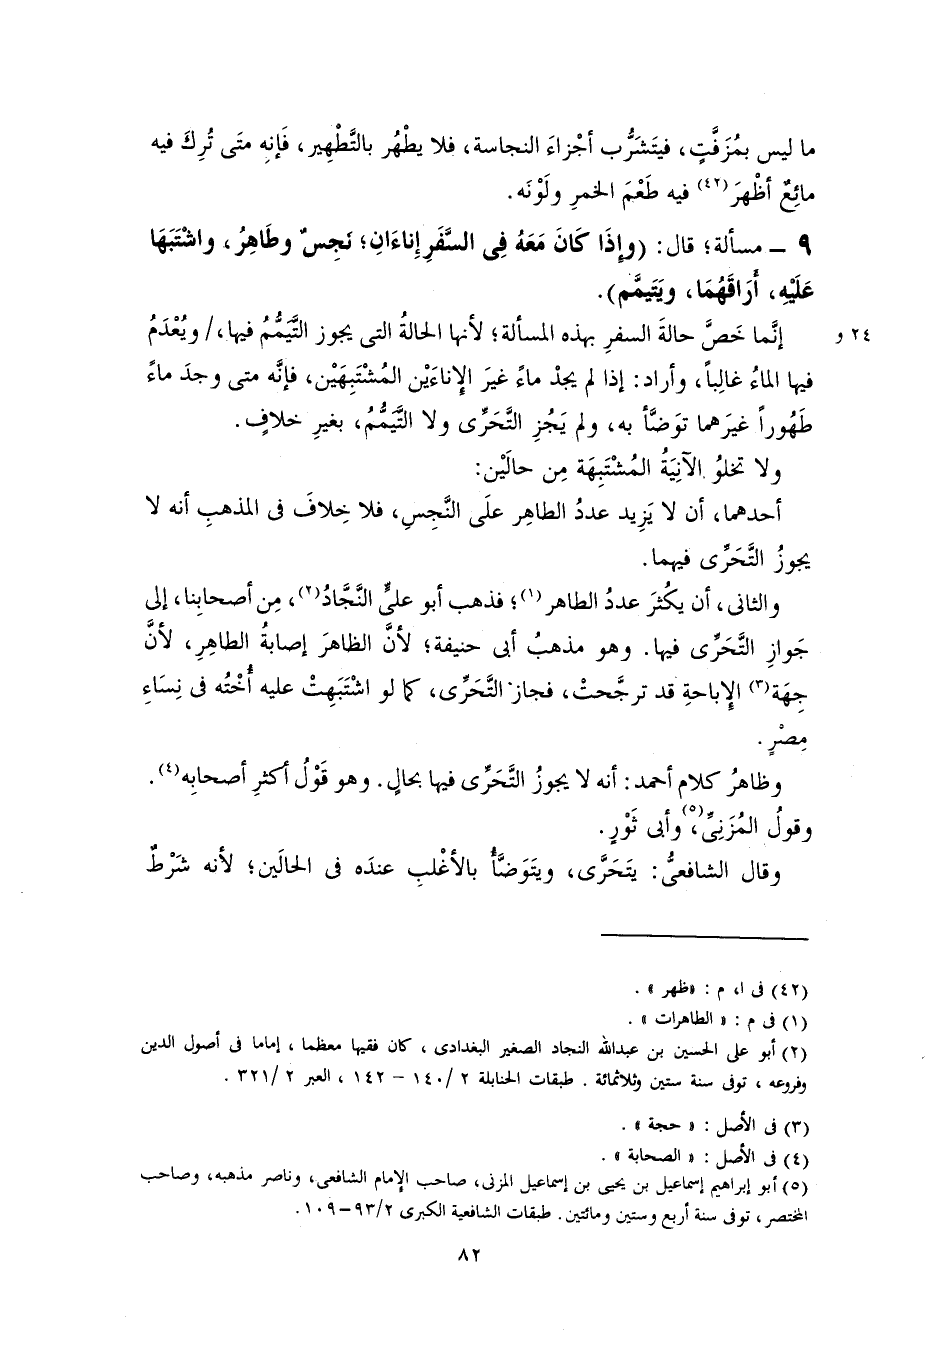 ما ليس بمُزَفَّتٍ، فيتَشَرُّب أجْزاءَ النجاسة، فلا يطْهُر بالتَّطْهِير، فَإنِه متَى تُرِكَ فيه
مائِعٌ أظْهرَ(٤٢) فيه طَعْمَ الخمرِ ولَوْنَه.
٩ – مسألة؛ قال: (وإِذَا كَانَ مَعَهُ فِى السَّفَرِ إِنَاءَانِ؛ نَجِسٌ وطَاهِرُ، واشْتَبَهَا
عَلَيْهِ، أَرَاقَهُمَا، ويَتَيمَّم).
٢٤ و إنَّما خَصَّ حالةَ السفرِ بهذه المسألة؛ لأنها الحالةُ التى يجوز التَّيَمُّمُ فيها،/ ويُعْدَمُ
فيها الماءُ غالِباً، وأراد: إذا لم يجدْ ماءً غيرَ الإِناءَيْن المُشْتَبِهَيْن، فإنَّه متى وجدَ ماءً
طَهُوراً غيرَهما توَضَّأ به، ولم يَجُزِ التَّحَرِّى ولا التَّيَمُّمُ، بغيرِ خلافٍ.
ولا تخلوُ الآنِيَةُ المُشْتَبِهَة مِن حالَيْن:
أحدهما، أن لا يَزِيد عددُ الطاهِر علَى النَّجِسِ، فلا خِلافَ فى المذهبِ أنه لا
يجوزُ التَّحَرِّى فيهما.
والثانى، أن يكثرَ عددُ الطاهر(١)؛ فذهب أبو علىٍّ النَّجَّادُ(٢)، مِن أصحابِنا، إلى
جَوازِ التَّحَرِّى فيها. وهو مذهبُ أبى حنيفة؛ لأنَّ الظاهرَ إصابةُ الطاهِرِ، لأنَّ
جِهَة(٣) الإِباحةِ قد ترجَّحتْ، فجاز التَّحَرِّى، كما لو اشْتَبَهتْ عليه أُخْتُه فى نِسَاءِ
مِصْرٍ.
وظاهرُ كلامِ أحمد: أنه لا يجوزُ التَّحَرِّى فيها بحالٍ. وهو قَوْلُ أكثرِ أصحابِه(٤).
وقولُ المُزَنِىِّ(٥)، وأبى ثَوْرٍ.
وقال الشافعىُّ: يتَحَرَّى، ويتَوَضَّأُ بالأغْلبِ عندَه فى الحالَين؛ لأنه شَرْطٌ
(٤٢) فى ا، م : «ظهر» .
(١) فى م : « الطاهرات » .
(٢) أبو على الحسين بن عبدالله النجاد الصغير البغدادى ، كان فقيها معظما ، إماما فى أصول الدين
وفروعه ، توفى سنة ستين وثلاثمائة . طبقات الحنابلة ٢ /١٤٠ – ١٤٢ ، العبر ٢ /٣٢١ .
(٣) فى الأصل : « حجة » .
(٤) فى الأصل : « الصحابة » .
(٥) أبو إبراهيم إسماعيل بن يحيى بن إسماعيل المزنى، صاحب الإمام الشافعى، وناصر مذهبه، وصاحب
المختصر، توفى سنة أربع وستين ومائتين. طبقات الشافعية الكبرى ٢/ ٩٣–١٠٩ .
٨٢